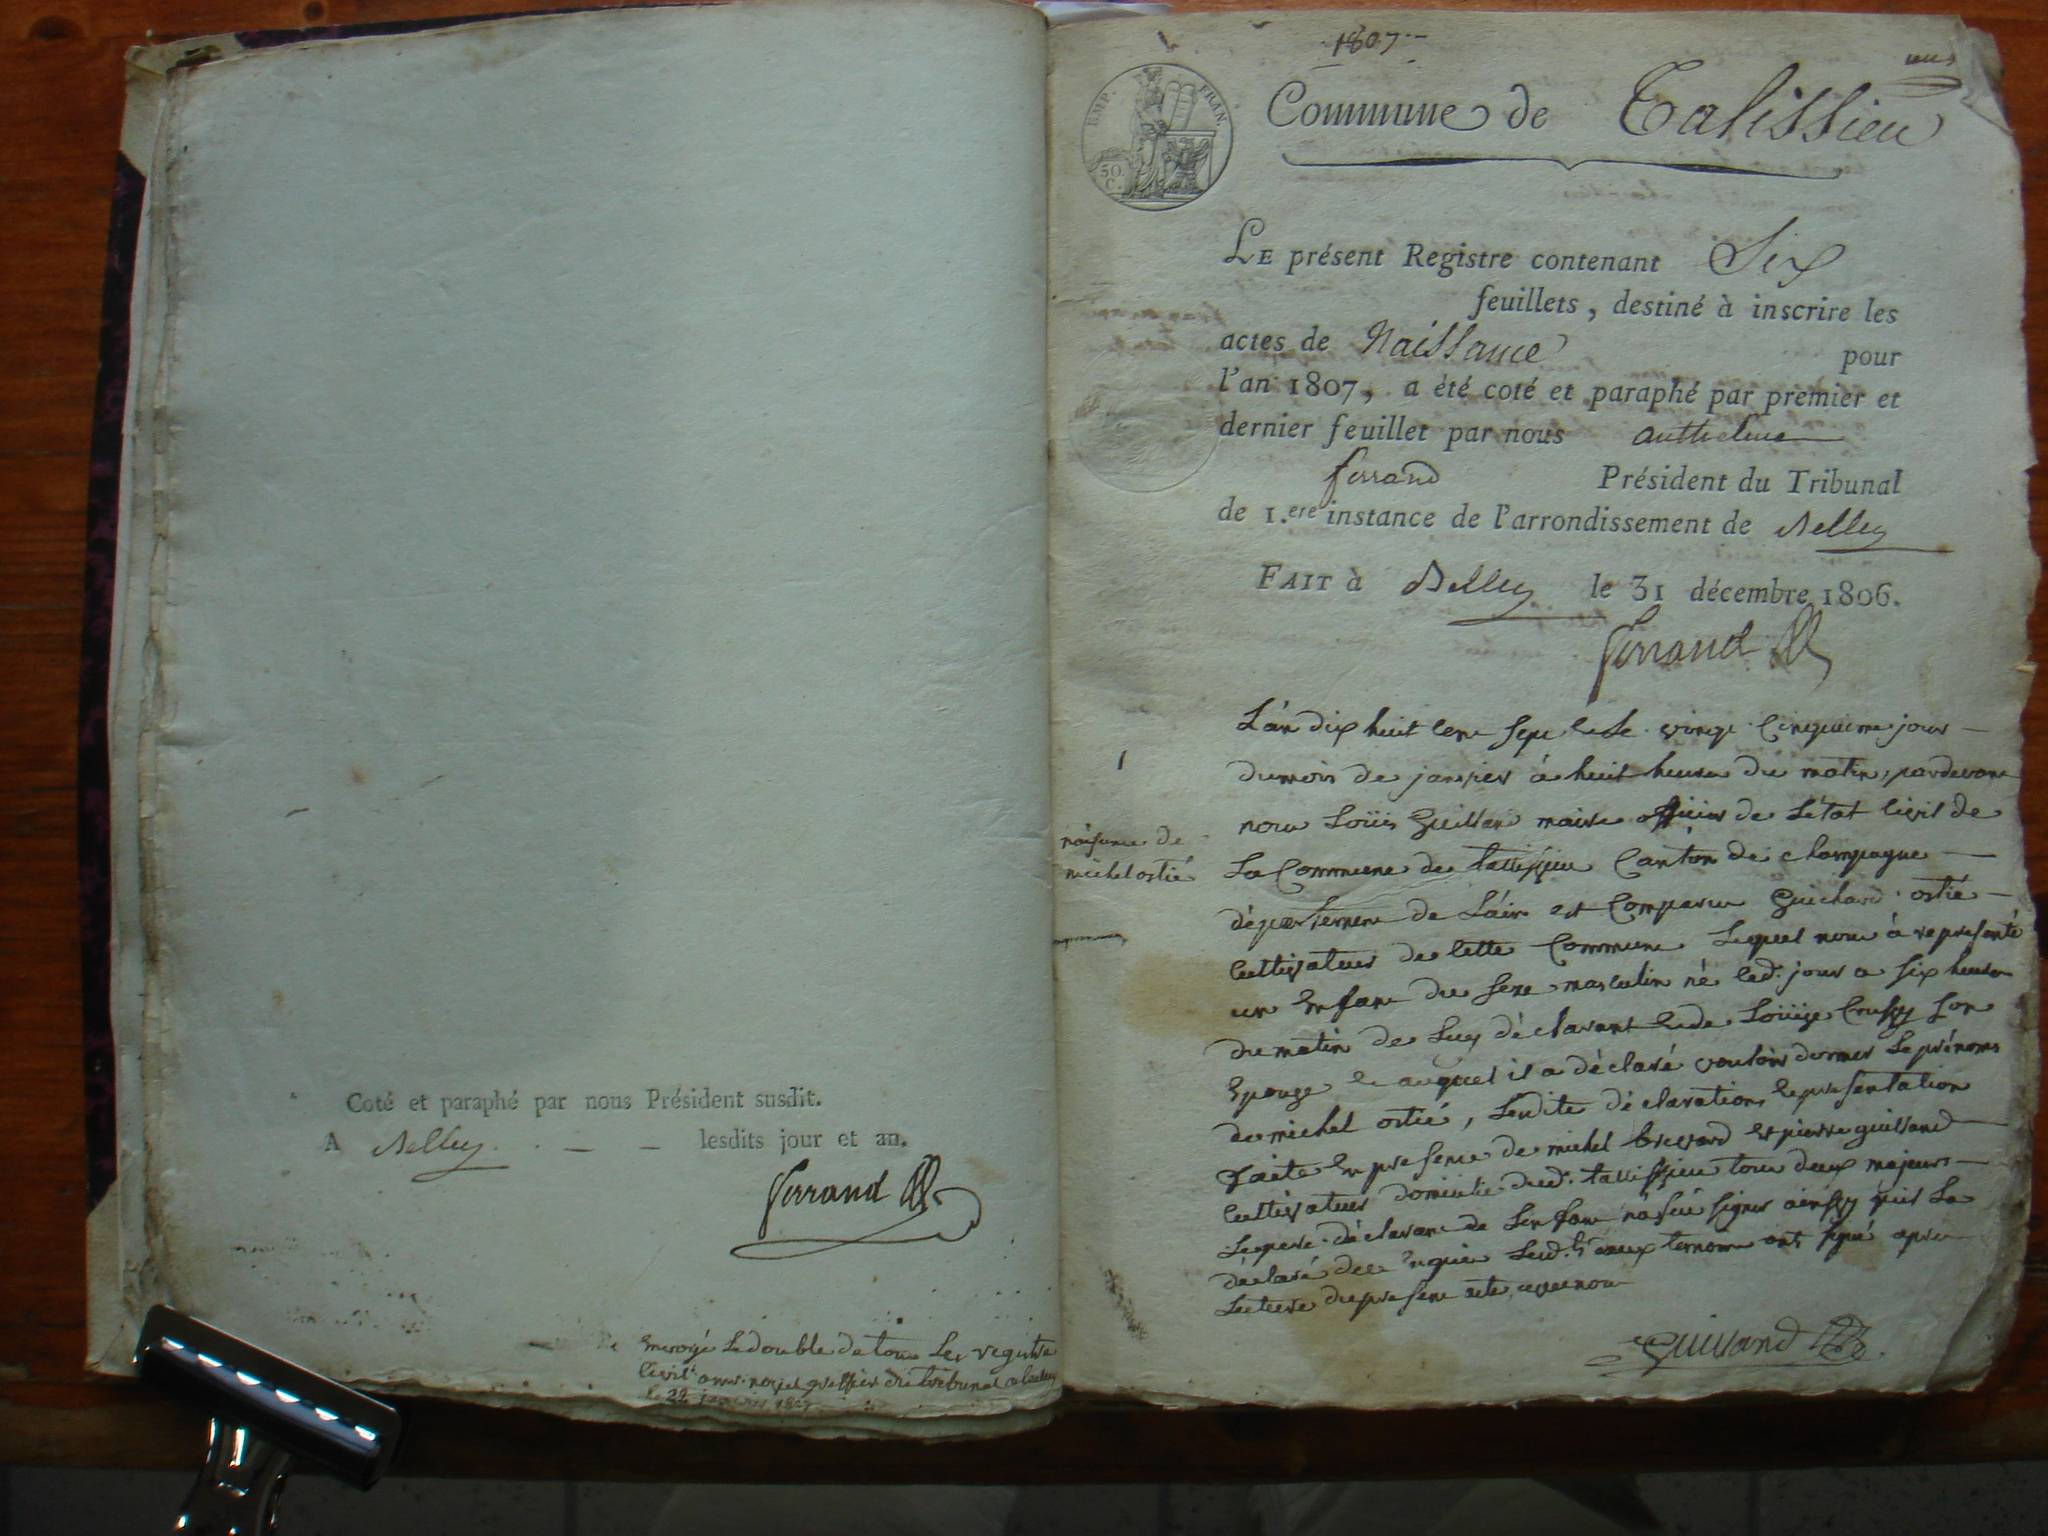 Coté et paraphé par nous Président susdit.
A Belley. lesdits jour et an.
Ferrand
Envoyé Le double de tous Les registre
Civil a mr. greffier du tribunal a belley
le 22 janvier 1807
1807
EMP. FRAN.
50. C.
Commune de Talissieu
LE présent Registre contenant Six
feuillets, destiné à inscrire les
actes de Naissance pour
l'an 1807, a été coté et paraphé par premier et
dernier feuillet par nous anthelme
ferrand Président du Tribunal
de 1.ere instance de l'arrondissement de Belley
FAIT à Belley le 31 décembre 1806.
Ferrand
1
L'an dix huit cent sept et Le vingt Cinquieme jour
du mois de janvier à huit heures du matin, pardevant
nous Loüis Guilland maire officier de L'état Civil de
naissance de
michel ostié
La Commune de tallissieu Canton de champagne
département de L'ain est Comparu Guichard ostié
Cultivateur de Cette Commune Lequel nous à representé
un Enfant du sexe masculin né led. jour a six heures
du matin de Luy déclarant et de Loüise Son
Epouze et auquel il a déclaré vouloir donner Le prénoms
de michel ostié, Lesdite déclaration et presentation
faite En presence de michel brevard et pierre guilland
Cultivateurs domicilié dud. tallissieu tous deux majeurs
Le pere déclarant de L'enfant n'a seü signer ainsy qu'il La
déclaré de Ce requis Lesd. deux temoins ont signé apres
Lecture du present acte avec nous
Guilland